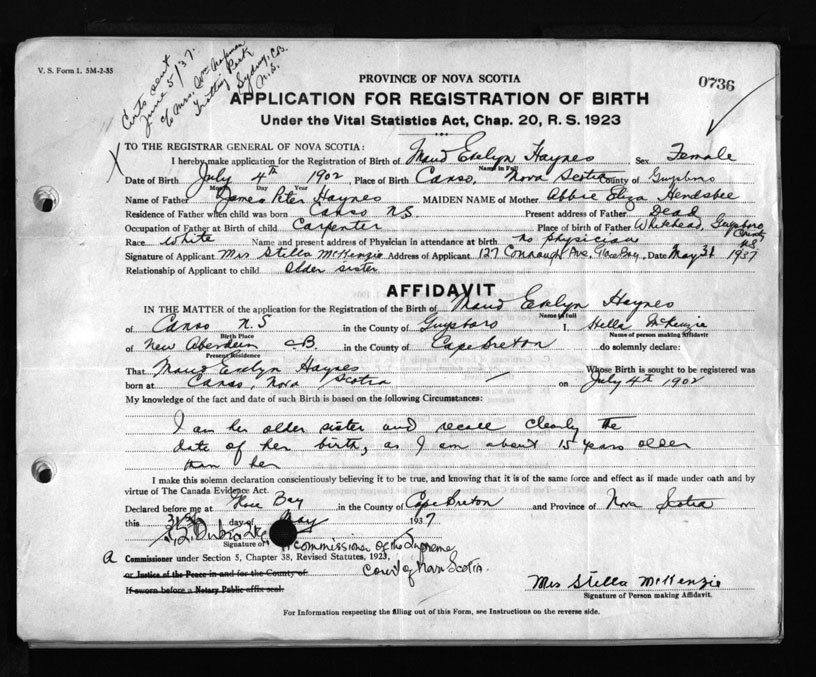 V. S. Form 1. 5M-2-35
Certs sent
June 5/37.
c/o Mrs. Wm Chapman
Trotting Park
Sydney, C.B.
N.S.
PROVINCE OF NOVA SCOTIA
0736
APPLICATION FOR REGISTRATION OF BIRTH
Under the Vital Statistics Act, Chap. 20, R. S. 1923
X TO THE REGISTRAR GENERAL OF NOVA SCOTIA:
I hereby make application for the Registration of Birth of Maud Evelyn Haynes Sex Female
Name in Full
Date of Birth July 4th 1902, Place of Birth Canso, Nova Scotia County of Guysboro
Month Day Year
Name of Father James Peter Haynes MAIDEN NAME of Mother Abbie Eliza Hendsbee
Residence of Father when child was born Canso N.S. Present address of Father Dead
Occupation of Father at Birth of child Carpenter Place of Birth of Father Whitehead, Guysboro County N.S.
Race White Name and present address of Physician in attendance at birth no physician
Signature of Applicant Mrs Stella McKenzie Address of Applicant 127 Connaugh Ave, Glace Bay, Date May 31 1937
Relationship of Applicant to child older sister
AFFIDAVIT
IN THE MATTER of the application for the Registration of the Birth of Maud Evelyn Haynes
Name in full
of Canso N.S in the County of Guysboro I, Stella McKenzie
Birth Place Name of person making Affidavit
of New Aberdeen CB in the County of Cape Breton do solemnly declare:
Present Residence
That Maud Evelyn Haynes Whose Birth is sought to be registered was
born at Canso, Nova Scotia on July 4th 1902
My knowledge of the fact and date of such Birth is based on the following Circumstances:
I am her older sister and recall clearly the
date of her birth, as I am about 15 years older
than her
I make this solemn declaration conscientiously believing it to be true, and knowing that it is of the same force and effect as if made under oath and by
virtue of The Canada Evidence Act.
Declared before me at Glace Bay in the County of Cape Breton and Province of Nova Scotia
this 31st day of May 1937
Signature of
A Commissioner of the Supreme
a Commissioner under Section 5, Chapter 38, Revised Statutes, 1923,
Court of Nova Scotia.
or Justice of the Peace in and for the County of
If sworn before a Notary Public affix seal.
Mrs Stella McKenzie
Signature of Person making Affidavit.
For Information respecting the filling out of this Form, see Instructions on the reverse side.